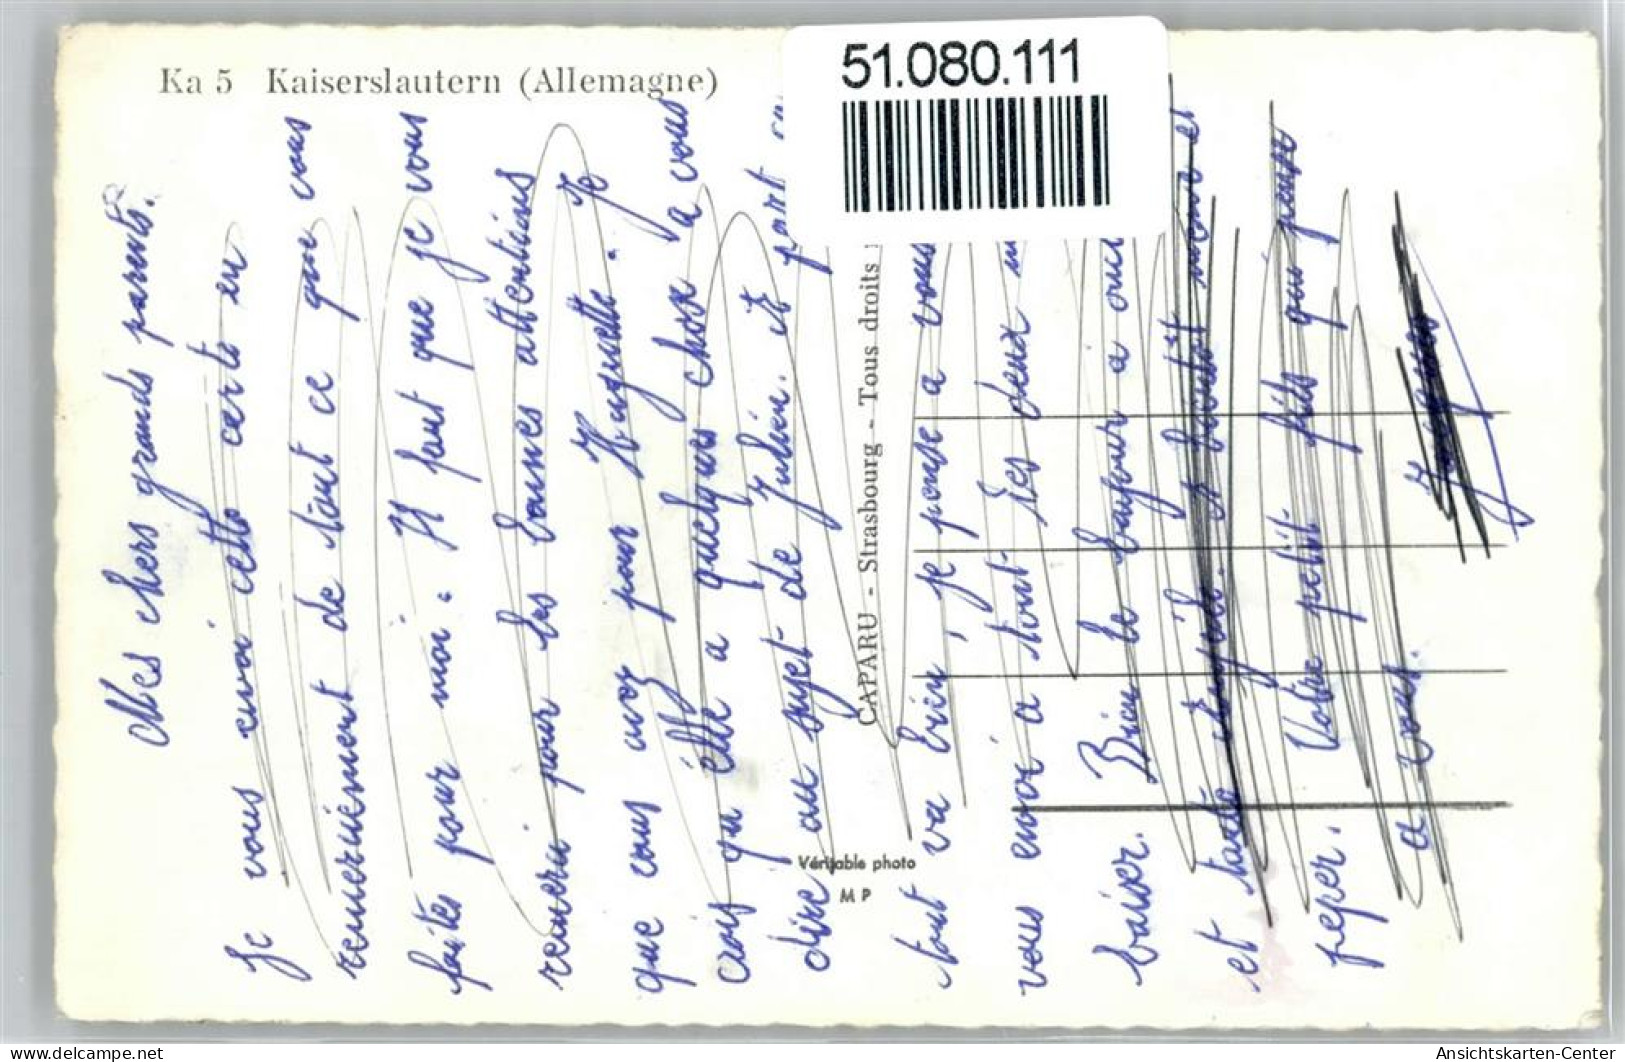 Ka 5 Kaiserslautern (Allemagne)
51.080.111
Mes chers grands parents.
Je vous envoi cette carte en
remerciément de tout ce que vous
faites pour moi. Il faut que je vous
remerci pour les bonnes attentions
que vous avez pour Huguette. Je
crois qu'elle a quelques chose a vous
dire au sujet de Julien. et part
tout va bien, je pense a vous
vous envoi a tout les deux un
baiser. Bien le bonjour a
et tante
peper. Votre petit fils qui pense
a vous. Jacques
CAPARU - Strasbourg - Tous droits
Véritable photo
M P
www.delcampe.net
Ansichtskarten-Center